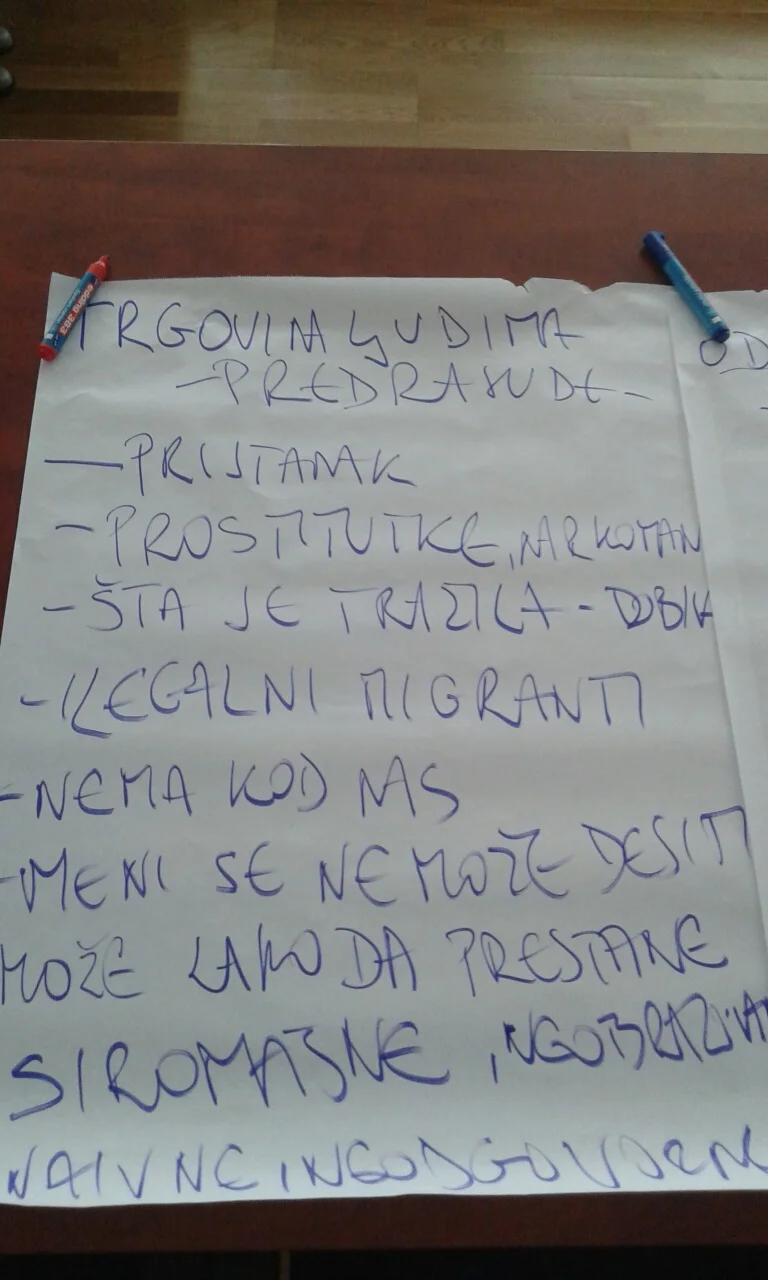 TRGOVINA LJUDIMA
-PREDRASUDE-
— PRISTANAK
- PROSTITUTKE, NARKOMAN
- ŠTA JE TRAŽILA - DOBILA
- ILEGALNI MIGRANTI
- NEMA KOD NAS
- MENI SE NE MOŽE DESITI
MOŽE LAKO DA PRESTANE
SIROMAŠNE, NEOBRAZOVAN
NAIVNE, NEODGOVORNE
OD
edding 383